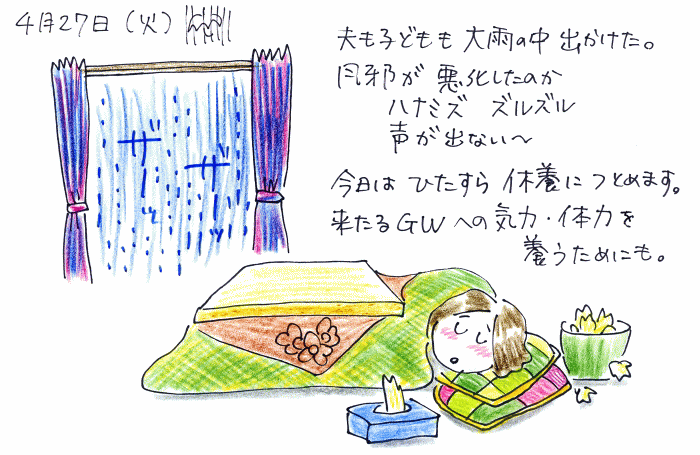 4月27日(火)
夫も子どもも 大雨の中 出かけた。
風邪が 悪化したのか
ハナミズ ズルズル
声が出ない〜
今日は ひたすら 休養に つとめます。
来たるGWへの気力・体力を
養うためにも。
ザーッ
ザーッ